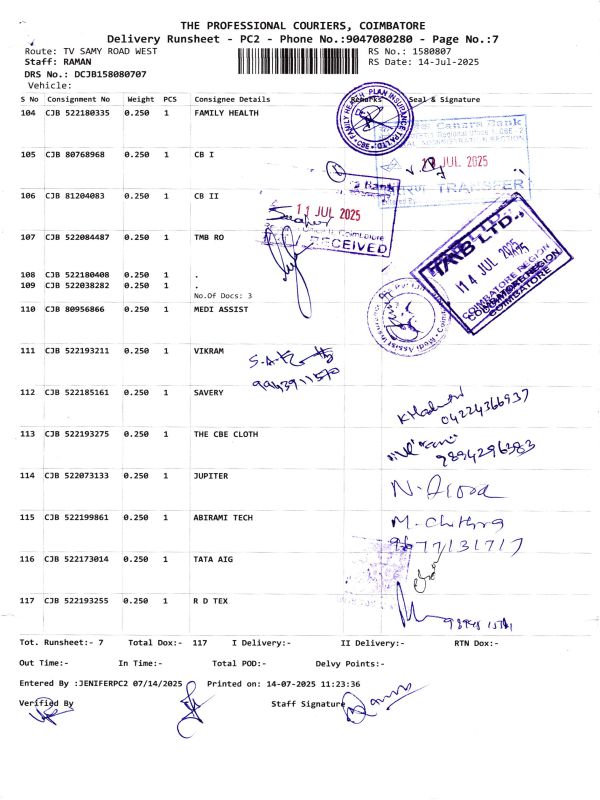 THE PROFESSIONAL COURIERS, COIMBATORE
Delivery Runsheet - PC2 - Phone No.:9047080280 - Page No.:7
Route: TV SAMY ROAD WEST RS No.: 1580807
Staff: RAMAN RS Date: 14-Jul-2025
DRS No.: DCJB158080707
Vehicle:
S No Consignment No Weight PCS Consignee Details Remarks Seal & Signature
104 CJB 522180335 0.250 1 FAMILY HEALTH
FAMILY HEALTH PLAN INSURANCE
Canara Bank
105 CJB 80768968 0.250 1 CB I
JUL 2025
TRANSFER
106 CJB 81204083 0.250 1 CB II
Bank
11 JUL 2025
Coimbatore
RECEIVED
107 CJB 522084487 0.250 1 TMB RO
TMB LTD.,
14 JUL 2025
COIMBATORE REGION
COIMBATORE
108 CJB 522180408 0.250 1 .
109 CJB 522038282 0.250 1 .
No.Of Docs: 3
110 CJB 80956866 0.250 1 MEDI ASSIST
Medi Assist
111 CJB 522193211 0.250 1 VIKRAM
112 CJB 522185161 0.250 1 SAVERY
04224366937
113 CJB 522193275 0.250 1 THE CBE CLOTH
9894296383
114 CJB 522073133 0.250 1 JUPITER
115 CJB 522199861 0.250 1 ABIRAMI TECH M. Chithra
9677131717
116 CJB 522173014 0.250 1 TATA AIG
117 CJB 522193255 0.250 1 R D TEX
Tot. Runsheet:- 7 Total Dox:- 117 I Delivery:- II Delivery:- RTN Dox:-
Out Time:- In Time:- Total POD:- Delvy Points:-
Entered By :JENIFERPC2 07/14/2025 Printed on: 14-07-2025 11:23:36
Verified By Staff Signature